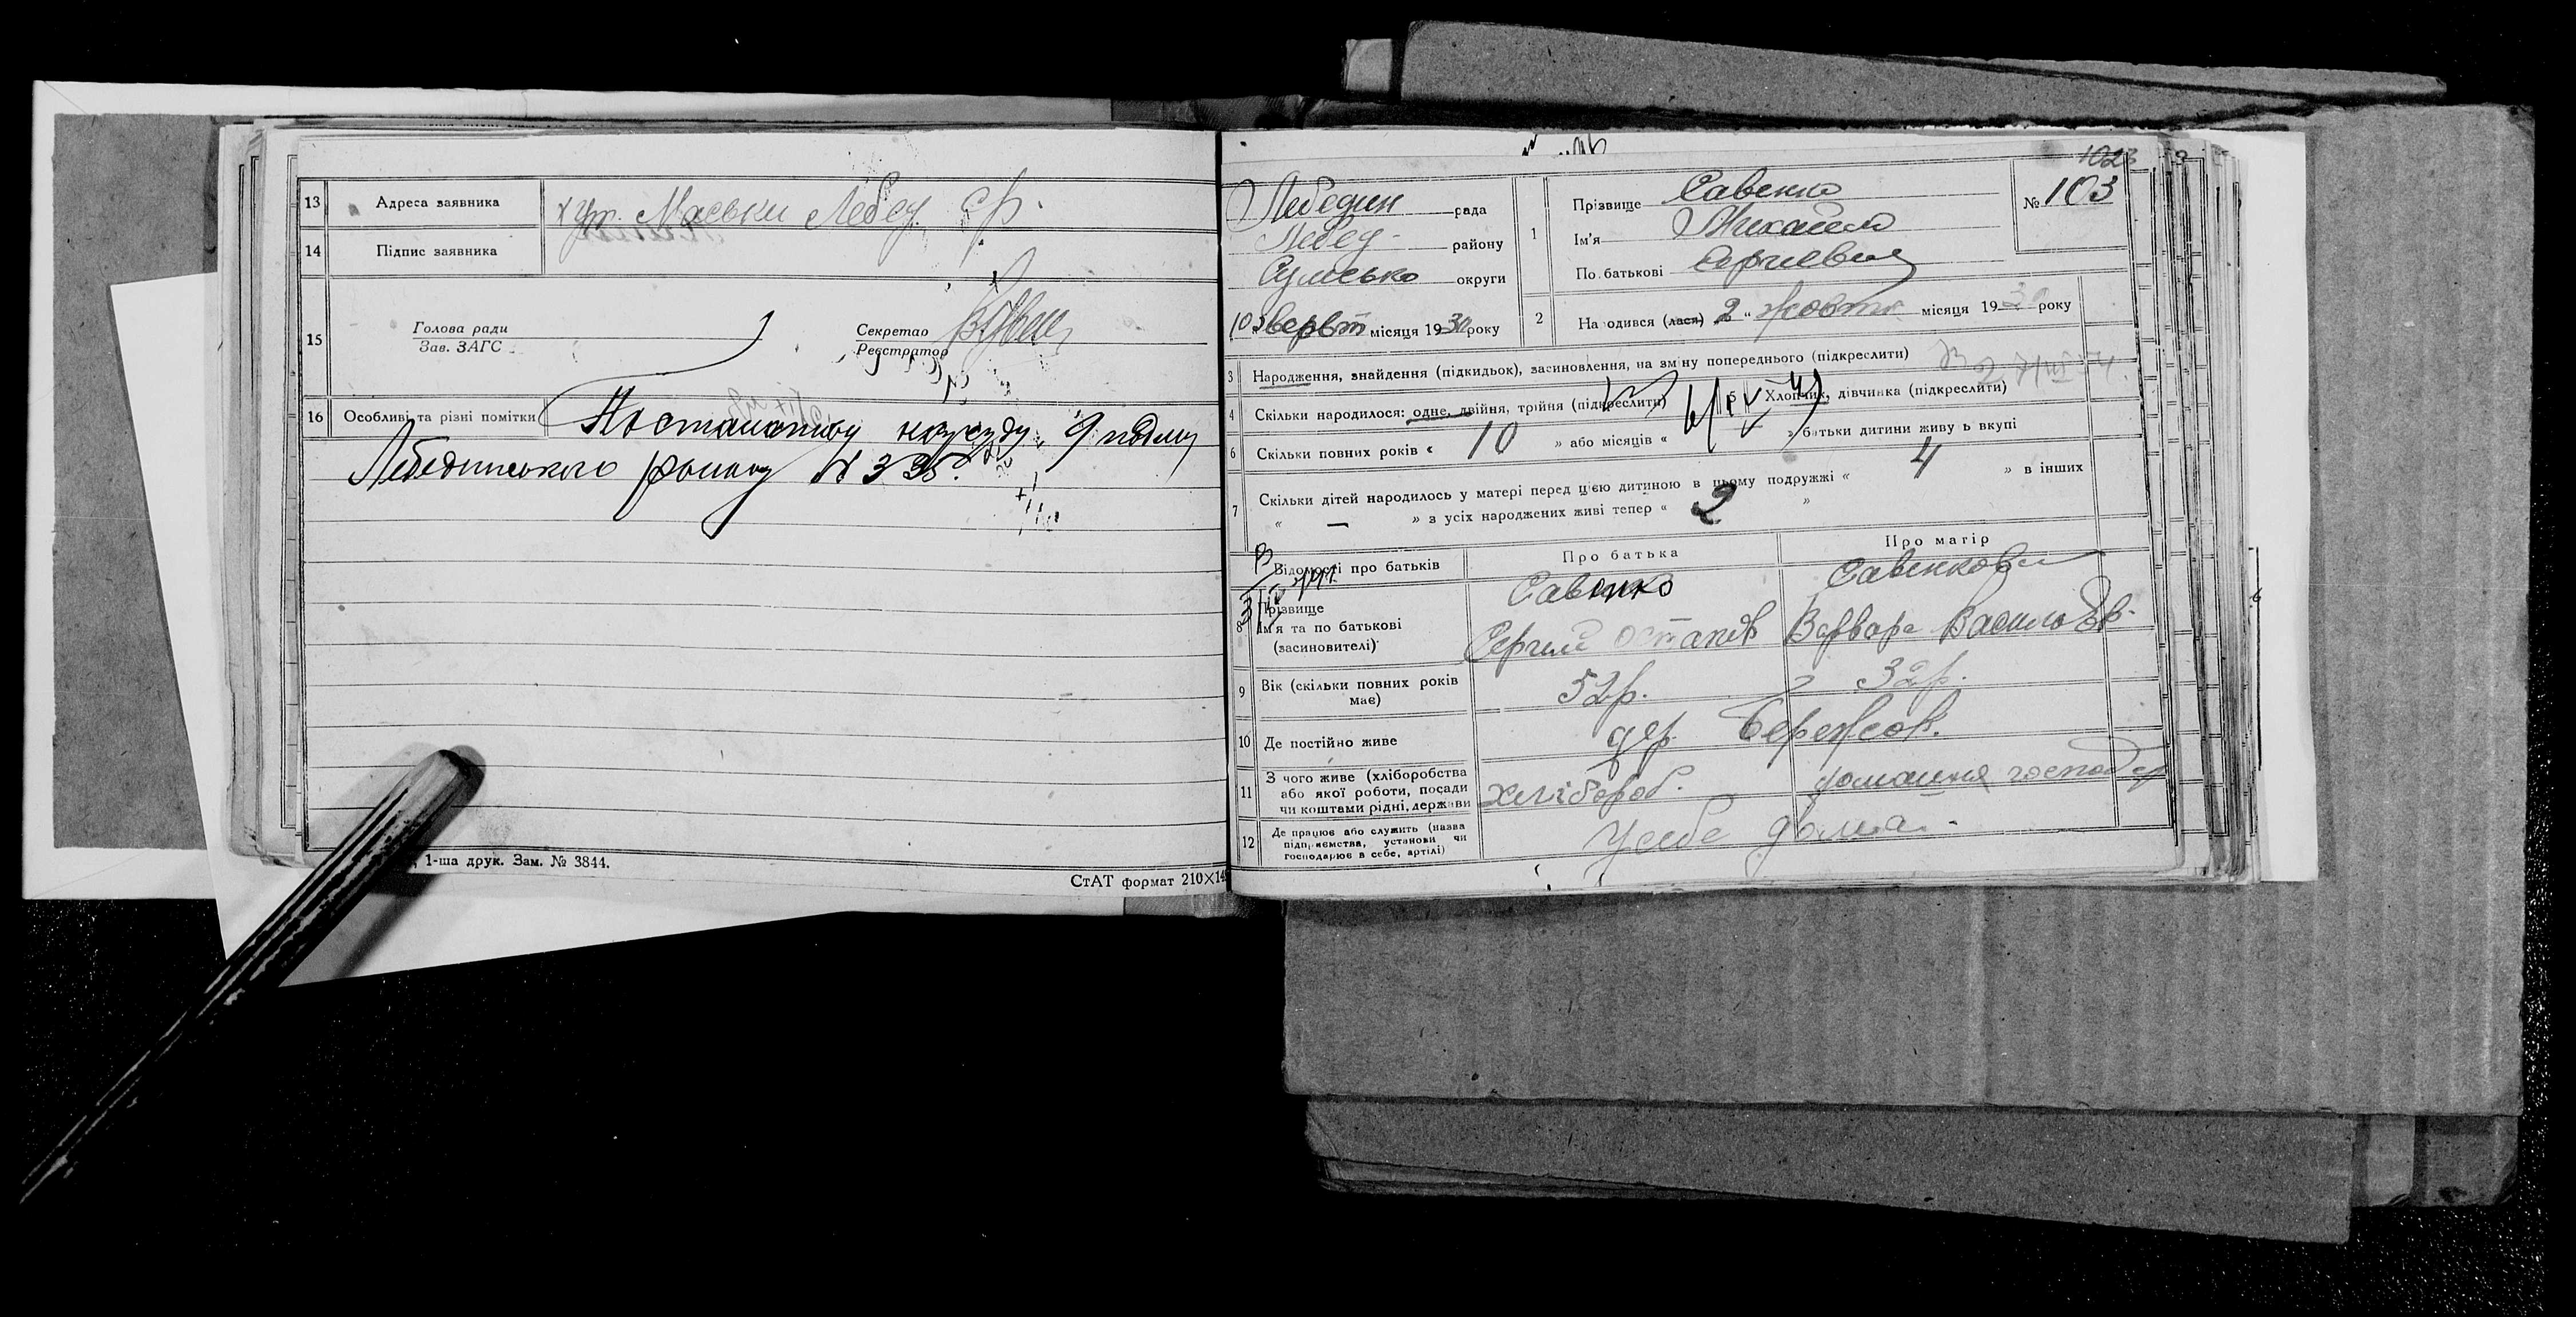 13 Адреса заявника хут. Маськи Лебед. ср.
14 Підпис заявника
15 Голова ради Секретар
Зав. ЗАГС Реєстратор
16 Особливі та різні помітки Постановою нарсуду
Лебединського району № 335.
1-ша друк. Зам. № 3844.
СтАТ формат 210×14
1023
Лебедин рада
Лебед- району
Сумсько округи
10 місяця 1930 року
1 Прізвище Савенко
Ім'я Михайло
По батькові Сергиевич
№ 103
2 Народився (лася) 2 " жовтн місяця 1930 року
3 Народження, знайдення (підкидьок), засиновлення, на зміну попереднього (підкреслити)
4 Скільки народилося: одне, двійня, трійня (підкреслити) 5 Хлопчик, дівчинка (підкреслити)
6 Скільки повних років « 10 » або місяців « » батьки дитини живуть вкупі
7 Скільки дітей народилось у матері перед цією дитиною в цьому подружжі « 4 » в інших
« — » з усіх народжених живі тепер « 2 »
Відомості про батьків Про батька Про матір
8 Прізвище Савенко Савенкова
Ім'я та по батькові Сергий Остапов Варвара Васильев-
(засиновителі)
9 Вік (скільки повних років має) 52р. 32р.
10 Де постійно живе дер.
11 З чого живе (хліборобства хлібороб. домашня господар
або якої роботи, посади
чи коштами рідні, держави
12 Де працює або служить (назва У себе дома.
підприємства, установи чи
господарює в себе, артілі)